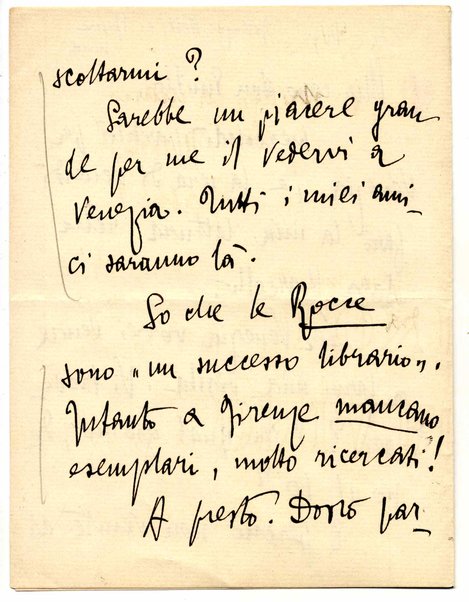 scoltarmi?
Sarebbe un piacere gran
de per me il vedervi a
Venezia. Tutti i miei ami-
ci saranno là.
So che le Rocce
sono „un successo librario„.
Intanto a Firenze mancano
esemplari, molto ricercati!
A presto. Dovrò par-